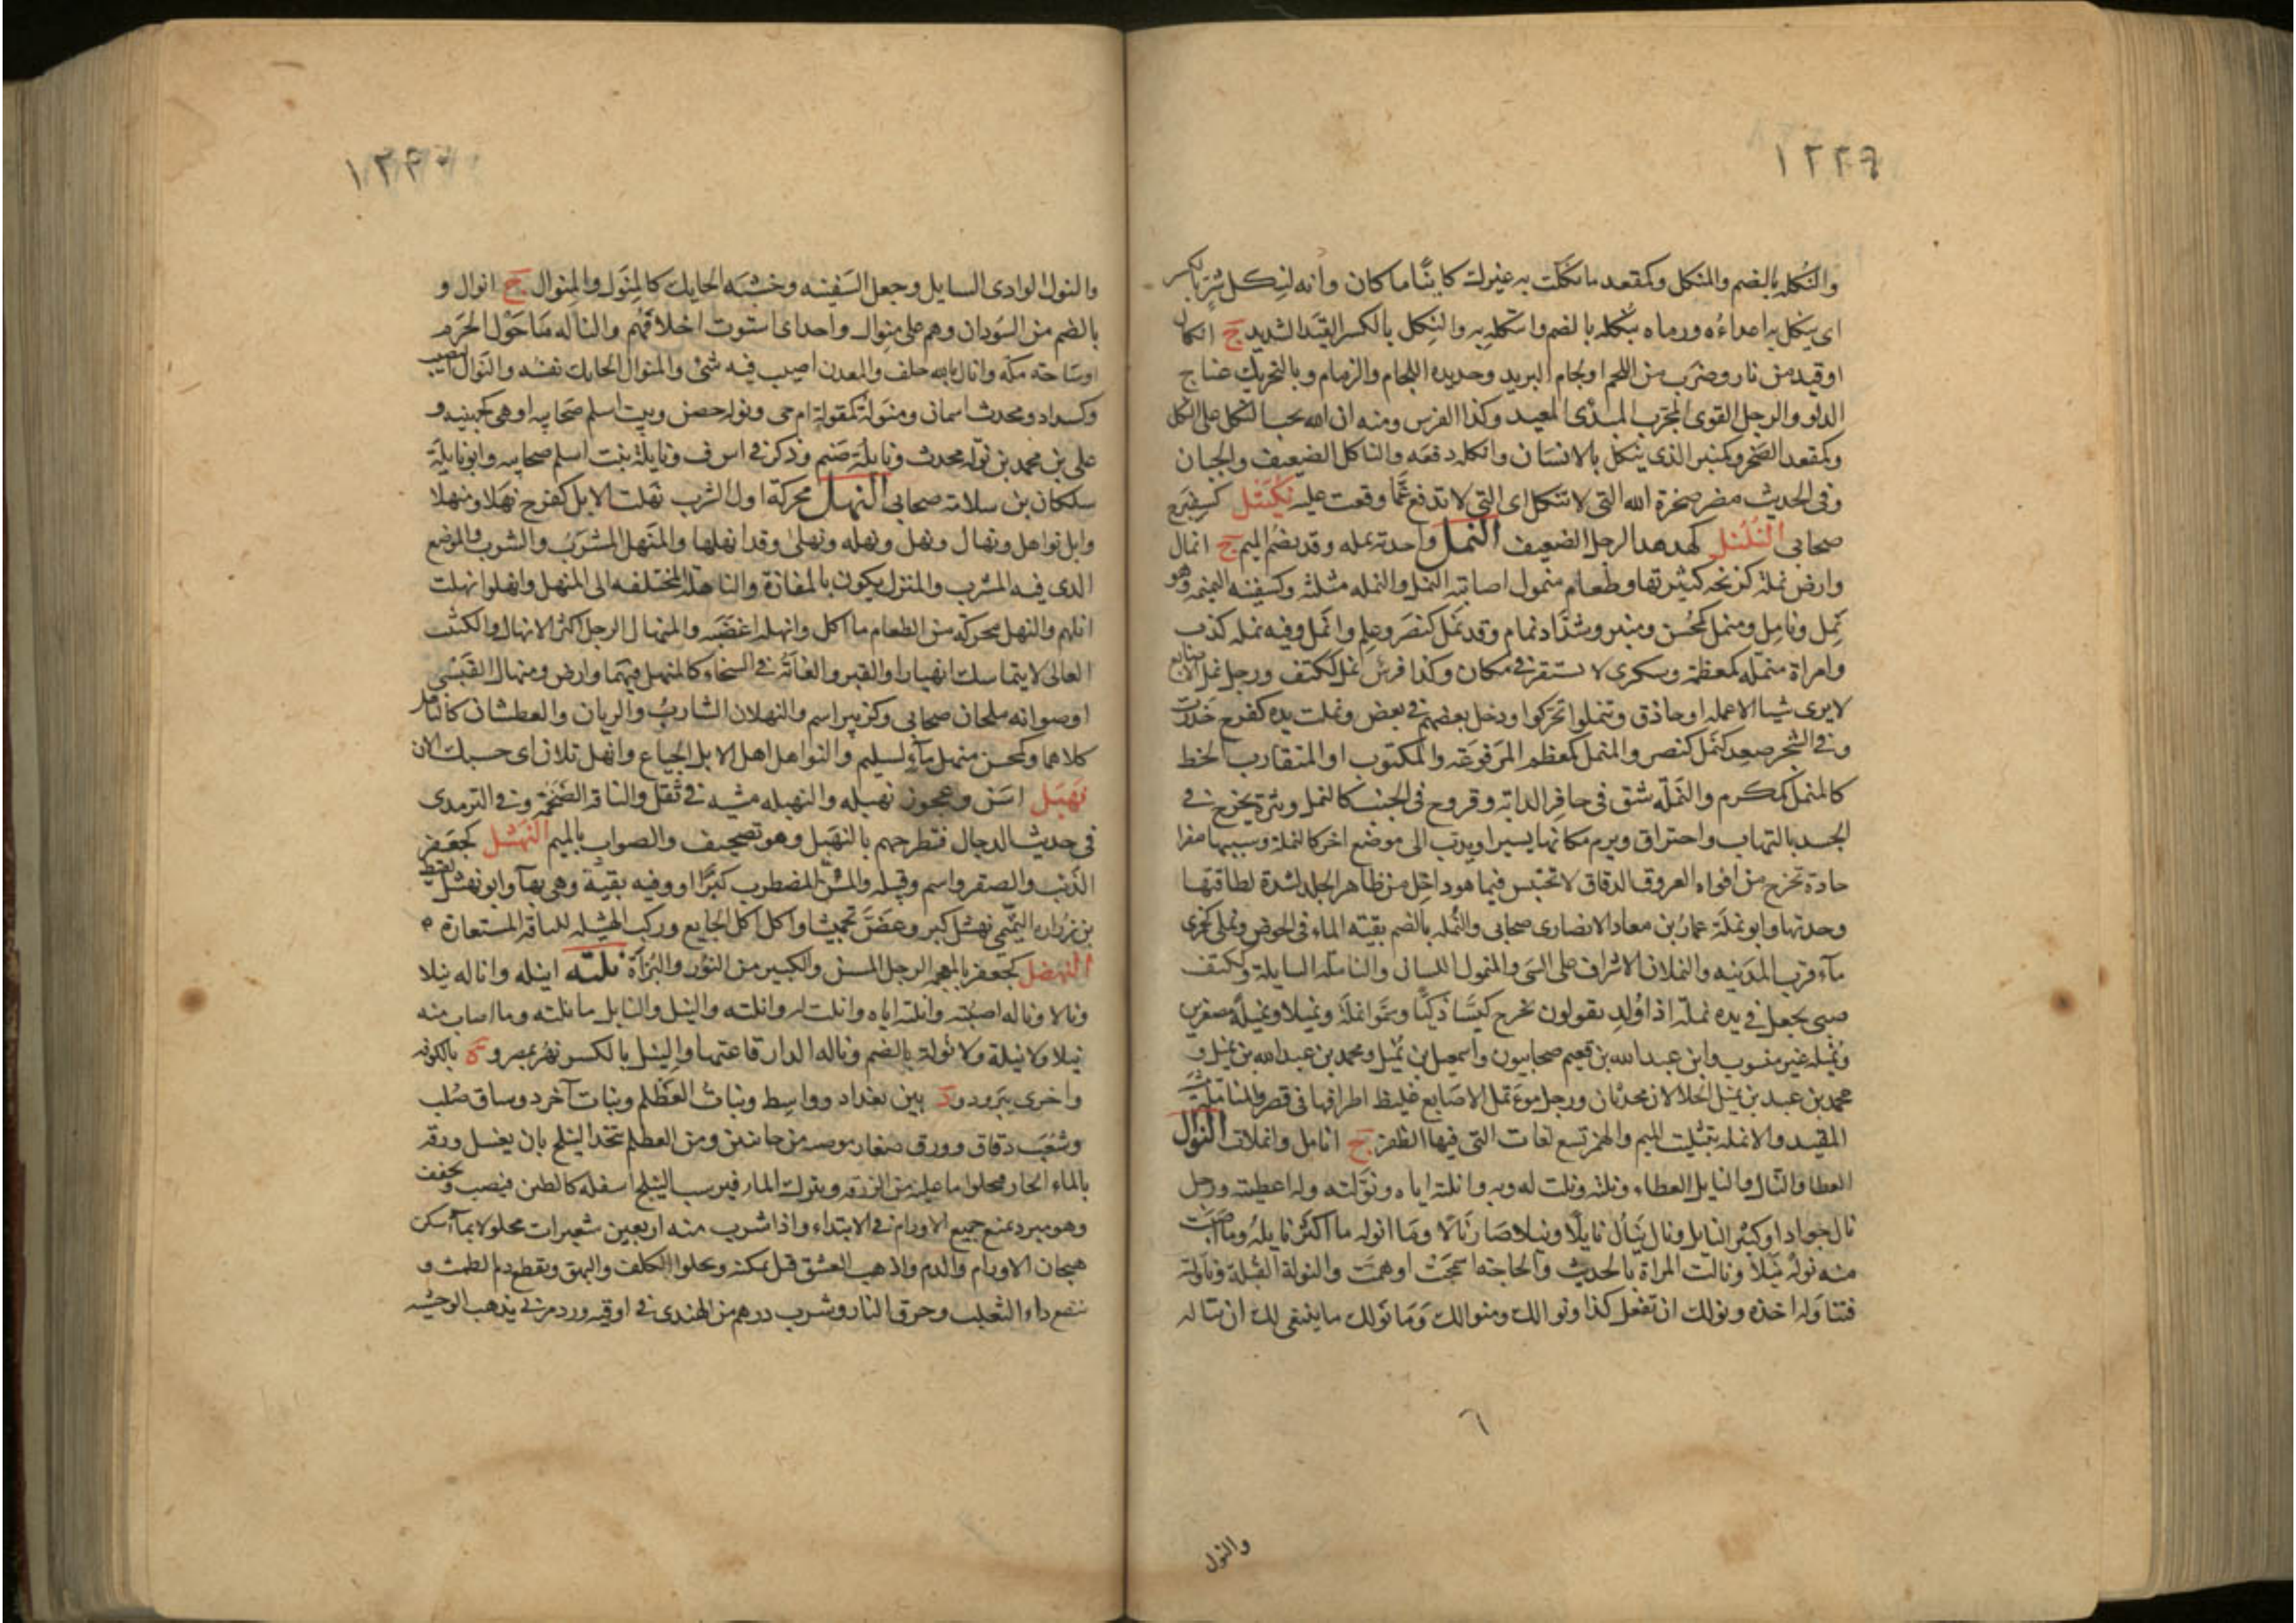 ١٢٣٩
والنكله بالضم والمنكل وكمقعد ما نكلت به غيرك كاينًا ما كان وانه لنكل شر بالكسر
اى ينكل به اعداءه ورماه بنكله بالضم وانكله به والنكل بالكسر القيد الشديد ج انكال
او قيد من نار وضرب من اللجم او لجام البريد وحديده اللجام والزمام وبالتحريك عناج
الدلو والرجل القوى المجرب المبدى المعيد وكذا الفرس ومنه ان الله يحب النكل على النكل
وكمقعد الصخر وكمنبر الذى ينكل بالانسان وانكله دفعه والناكل الضعيف والجبان
وفى الحديث مضر صخرة الله التى لا تنكل اى التى لا تدفع عما وقعت عليه نكتل كسفرج
صحابى النلنل كهدهد الرجل الضعيف النمل واحدته نمله وقد يضم الميم ج انمال
وارض نملة كزنخه كثيرتها وطعام منمول اصابته النمل والنمله مثلثه وكسفينه النميمه وهو
نمل ونامل ومنمل كمحسن ومنبر وشداد نمام وقد نمل كنصر وعلم وانمل وفيه نمله كذب
وامراة منمله كمعظمة وسكرى لا تستقر فى مكان وكذا فرس نمل ككتف ورجل نمل الاصابع
لا يرى شيا الا عمله او حاذق وتنملوا تحركوا ودخل بعضهم فى بعض ونملت يده كفرح خدرت
وفى الشجر صعد كنمل كنصر والمنمل كمعظم المرفوعه والمكتوب او المتقارب الخط
كالمنمل كمكرم والنمله شق فى حافر الدابه وقروح فى الجنب كالنمل وبثرة يخرج فى
الجسد بالتهاب واحتراق ويرم مكانها يسيرا ويدب الى موضع اخر كالنملة وسببها صفرا
حادة تخرج من افواه العروق الدقاق لا تحتبس فيما هو داخل من ظاهر الجلد لشدة لطافتها
وحدتها وابو نملة عمار بن معاد الانصارى صحابى والنمله بالضم بقيته الماء فى الحوض ونملى كجزى
ماء قرب المدينه والنملان الاشراف على الشى والمنمول اللسان والنامله السايلة وككتف
صبى يجعل فى يده نملة اذا اولد يقولون يخرج كيسًا ذكيًا وسموا نملة ونميلا ونميلة مصغرين
ونميله غير منسوب وابن عبد الله بن فقيم صحابيون واسمعيل بن نميل ومحمد بن عبد الله بن نميل و
محمد بن عبد بن نميل الخلالان محدثان ورجل موءنمل الاصابع غليظ اطرافها فى قصر
المقيد والانمله بتثليث الميم والهمز تسع لغات التى فيها الظفر ج انامل وانملات النوال
العطا والنال والنايل العطاء ونلته ونلت له وبه وانلته اياه ونولته وله اعطيته ورجل
نال جواد او كثير النايل ونال ينال نايلًا ونيلا صار نالا وما انوله ما اكثر نايله وما اصبت
منه نوله نيلا ونالت المراة بالحديث والحاجته اسمحت او همت والنولة القبلة وناولته
فتناوله اخذه ونولك ان تفعل كذا ونوالك ومنوالك وما نولك ما ينبغى لك ان تناله
٦
والنول
١٢٤٠
والنول الوادى السايل وجعل السفينه وخشبه الحايك كالمنول والمنوال ج انوال و
بالضم من السودان وهم على منوال واحد اى استوت اخلاقهم والناله ما حول الحرم
او ساحته مكه وانال بالله حلف والمعدن اصيب فيه شئ والمنوال الحايك نفسه والنوال النصيب
وكسداد محدث اسمان ومنولة كمقولة ام حى ونوله حصن وبنت اسلم صحابيه او هى كجهينه و
على بن محمد بن نوله محدث ونايلة صنم وذكر فى اس ف ونايلة بنت اسلم صحابيه وابو نايلة
سلكان بن سلامه صحابى النهل محركة اول الشرب نهلت الابل كفرح نهلا ومنهلا
وابل نواهل ونهال ونهل ونهله ونهلى وقد انهلها والمنهل المشرب والشرب والموضع
الدى فيه المشرب والمنزل يكون بالمفازة والناهلة المختلفه الى المنهل وانهلوا نهلت
ابلهم والنهل محركه من الطعام ما اكل وانهله اغضبه والمنهال الرجل الكثر الانهال والكثيب
العالى لا يتماسك انهيارا والقبر والغاية فى السخاء كالمنهل فيهما وارض ومنهال القيسى
او صوابه ملحان صحابى وكزبير اسم والنهلان الشارب والريان والعطشان كالناهل
كلاهما وكمحسن منهل ماء لسليم والنواهل الابل الجياع وانهل تلان اى حسبك الان
نهبل اسن وعجوز نهبله والنهبله مشيه فى ثقل والناقة الضخمة وفى الترمدى
فى حديث الدجال فتطرحهم بالنهبل وهو تصحيف والصواب بالميم النهشل كجعفر
الذيب والصقر واسم وقبيله والمسن المضطرب كبرًا او وفيه بقية وهى بهاء وابو نهشل لقيط
بن زراره التميمى نهشل كبر وعض تجميشا واكل اكل الجايع وركب الهشيله للناقة المستعارة
النهضل كجعفر بالمعجمه الرجل المسن والكبير من النور والبزاة نلته انيله واناله نيلا
ونالا وناله اصبته وانلته اياه وانلت له وانلته والنيل والنايل ما نلته وما اصاب منه
نيلا ولا نيلة ولا نولة بالضم وناله الدار قاعتها والنيل بالكسر نهر بمصر و ة بالكوفه
واخرى بيزد و د بين بغداد وواسط ونبات العظلم ونبات آخر ذو ساق صلب
وشعب دقاق وورق صغار مرصعه من جانبين ومن العظلم يتخذ النيلج بان يغسل ورقه
بالماء الحار فيجلوا ما عليه من الزرقه ويترك الماء فيرسب النيلج اسفله كالطين فيصب ويجفف
وهو مبرد يمنع جميع الاورام فى الابتداء واذا شرب منه اربعين شعيرات محلولا بماء اسكن
هيجان الاورام والدم واذهب العشق قبل تمكنه ويجلوا الكلف والبهق ويقطع دم الطمث و
ينفع داء الثعلب وحرق النار وشرب درهم من الهندى فى اوقيه ورد مربى يذهب الوحشه